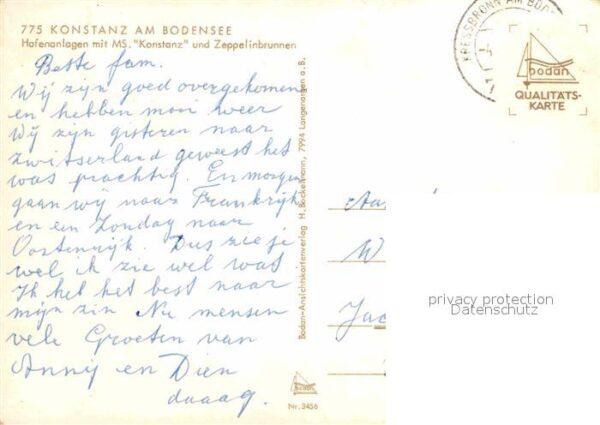 775 KONSTANZ AM BODENSEE
Hafenanlagen mit MS. "Konstanz" und Zeppelinbrunnen
Beste fam.
Wij zijn goed overgekomen
en hebben mooi weer
Wij zijn gisteren naar
zwitserland geweest het
was prachtig. En morgen
gaan wij naar Frankrijk
en een Zondag naar
Oostenrijk. Dus zie je
wel ik zie wel was
Ik heb het best naar
mijn zin Nu mensen
vele Groeten van
Anny en Dien
daaag.
Bodan-Ansichtskartenverlag H. Bockelmann, 7994 Langenargen a. B.
bodan
Nr. 3456
KRESSBRONN AM BOD
bodan
QUALITÄTS-
KARTE
W
privacy protection
Datenschutz